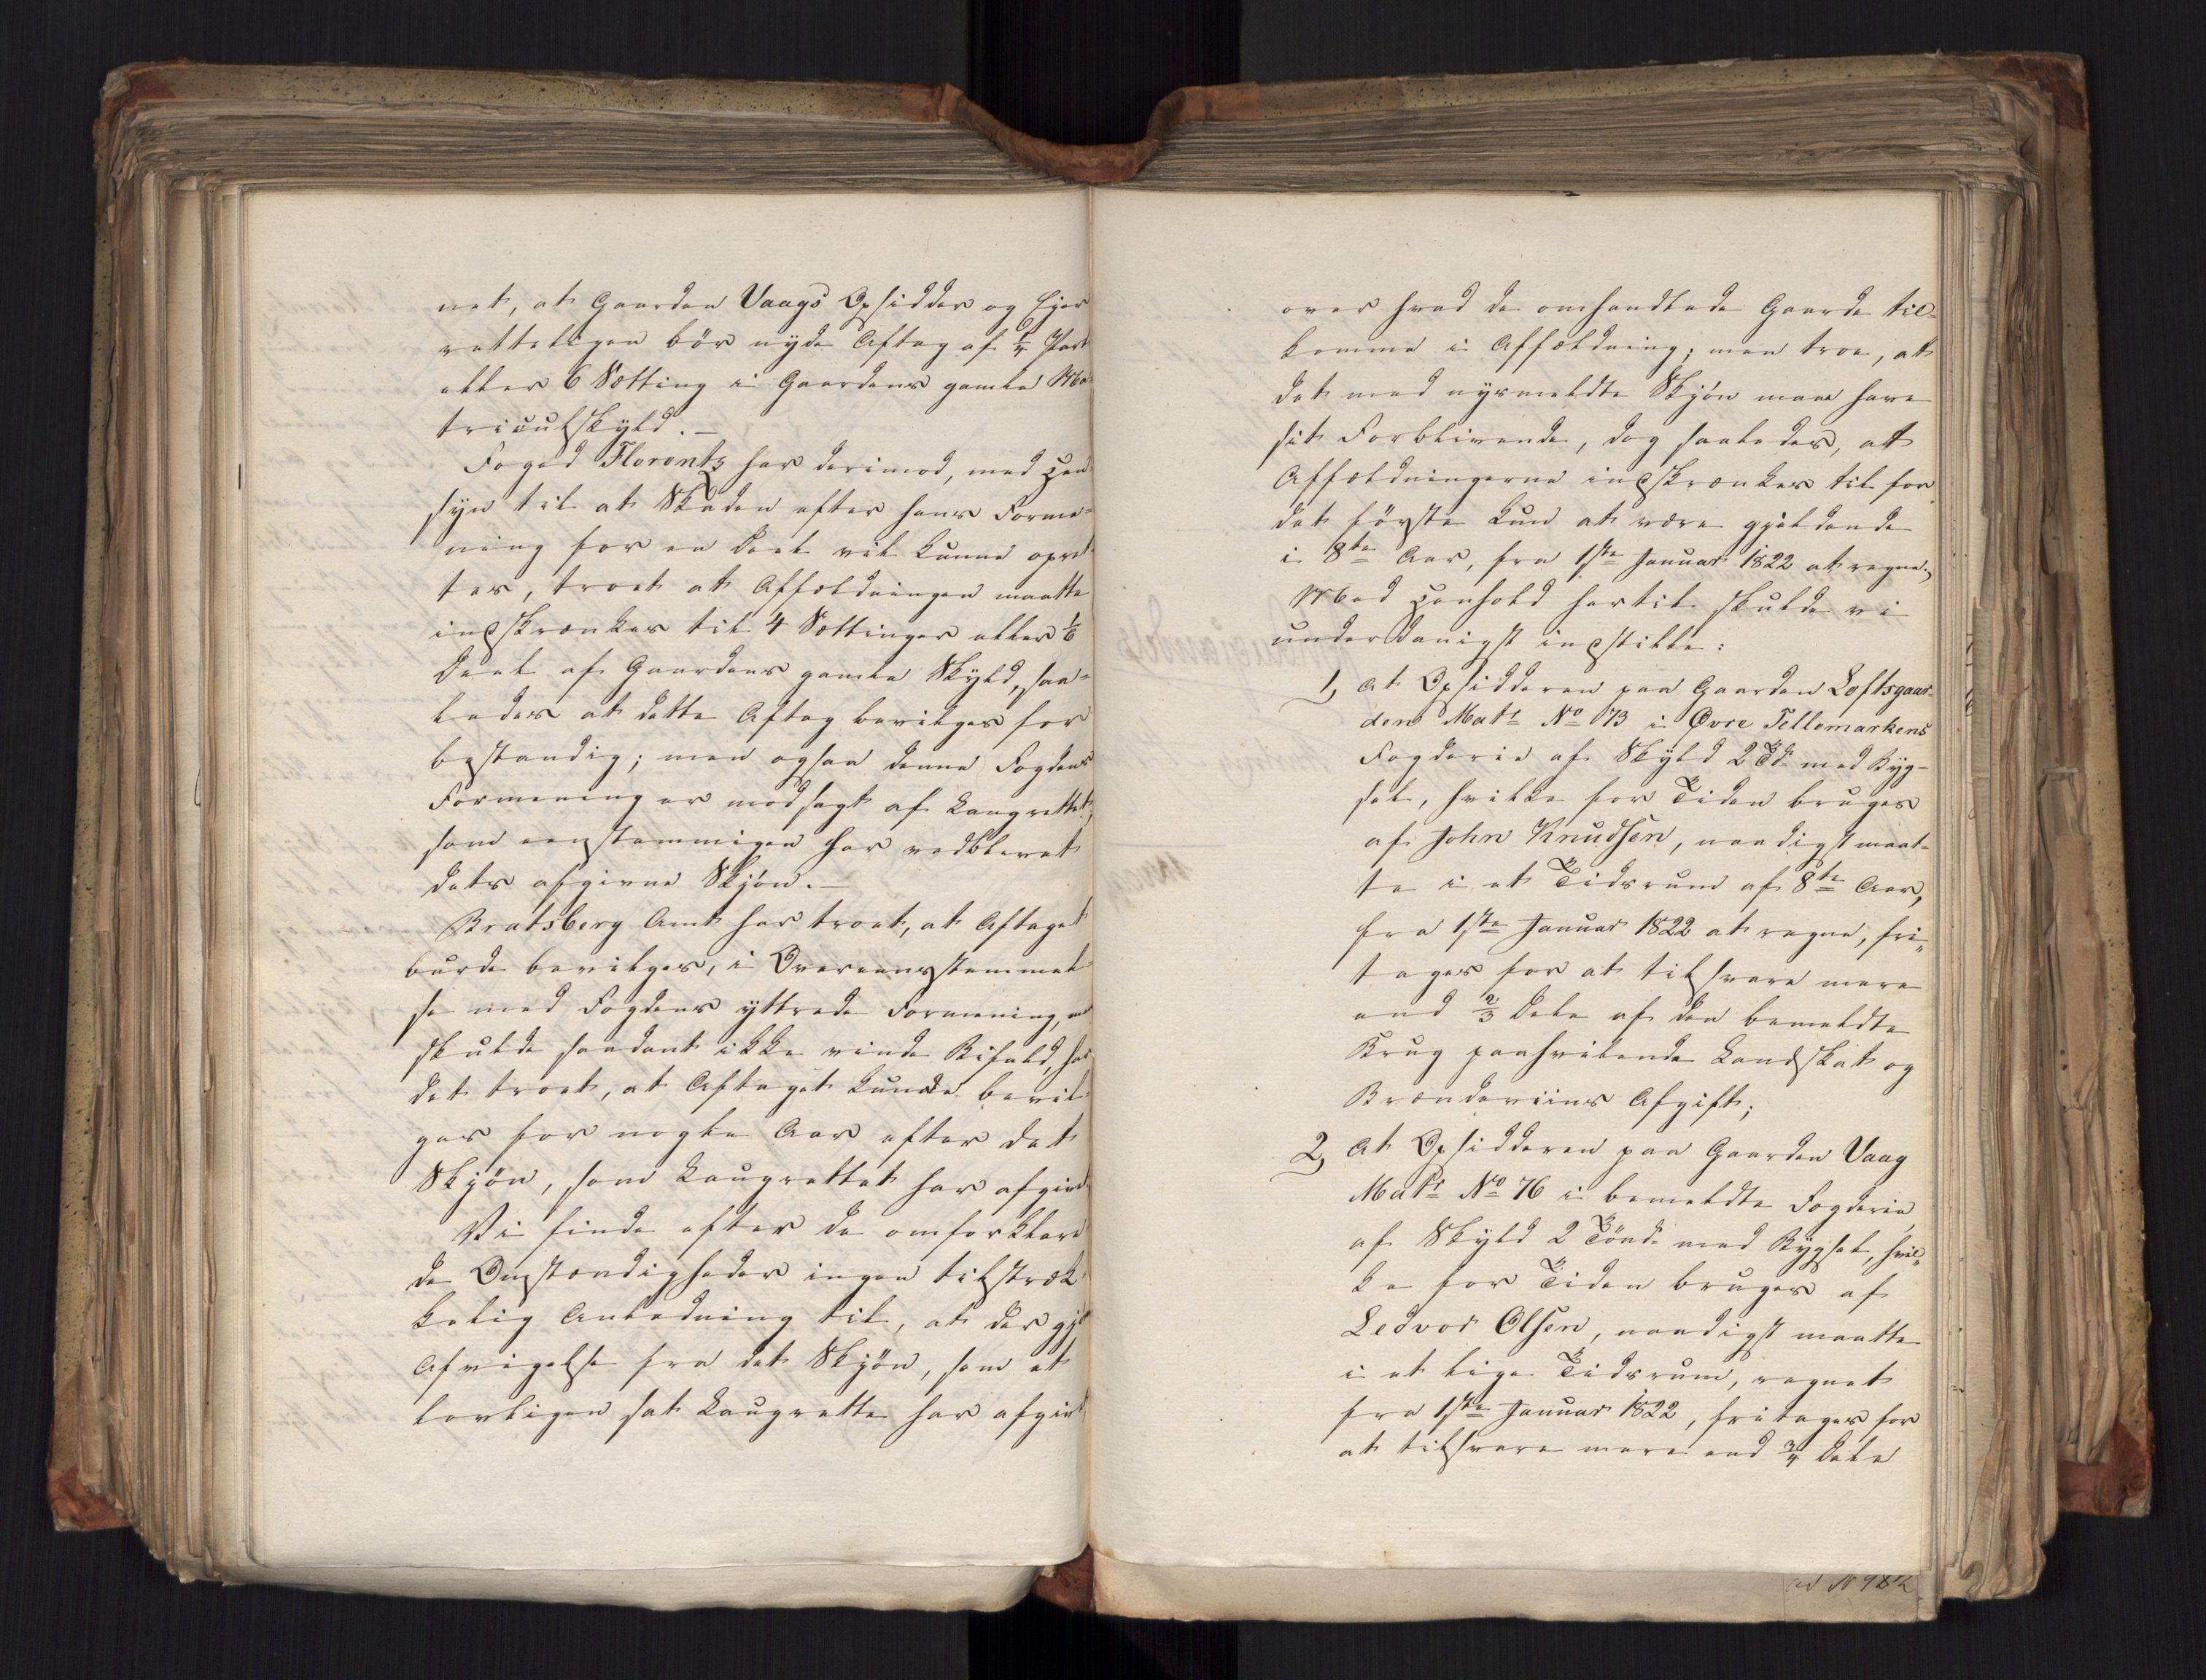 net, at Gaarden Vaags Opsidder og Ejer
retteligen bör nyde Aftag af ¼ Part
eller 6 Sætting i Gaardens gamle Ma-
triculskyld. –
Foged Florentz har derimod, med Hen-
syn til at Skaden efter hans Forme-
ning for en Deel vil kunne opret-
tes, troet at Affældningen maatte
indskrænkes til 4 Sættinger eller 1/6
Deel af Gaardens gamle Skyld, saa-
ledes at dette Aftag bevilges for
bestandig; men ogsaa denne Fogdens
Formening er modsagt af Laugrettet,
som eenstemmigen har vedblevet
dets afgivne Skjön. –
Bratsberg Amt har troet, at Aftaget
burde bevilges, i Overeensstemmel-
se med Fogdens yttrede Formening, men
skulde saadant ikke vinde Bifald, har
det troet, at Aftaget kunde bevil-
ges for nogle Aar efter det
Skjön, som Laugrettet har afgivet.
Vi finde efter de omforklare-
de Omstændigheder ingen tilstræk-
kelig Anledning til, at der gjö
Afvigelse fra det Skjön, som et
lovligen sat Laugrette har afgivet
over hvad de omhandlede Gaarde til-
komme i Affældning; men troe, at
det med nysmeldte Skjön maa have
sit Forblivende, dog saaledes, at
Affældningerne indskrænkes til for
det förste kun at være gjeldende
i 8te Aar, fra 1ste Januar 1822 at regne.
Med Henhold hertil skulde vi
underdanigst indstille:
1, at Opsidderen paa Gaarden Loftsgaar-
den Matr No 73 i Øvre Tellemarkens
Fogderie af Skyld 2 Td. med Byg-
sel, hvilke for Tiden bruges
af John Knudsen, naadigst maat-
te i et Tidsrum af 8te Aar,
fra 1ste Januar 1822 at regne, fri-
tages for at tilsvare mere
end 2/3 Dele af den bemeldte
Brug paahvilende Landskat og
Brændeviins Afgift;
2, at Opsidderen paa Gaarden Vaag
Matr No 76 i bemeldte Fogderie,
af Skyld 2 Tönd. med Bygsel, hvil-
ke for Tiden bruges af
Ledvor Olsen, naadigst maatte
i et lige Tidsrum, regnet
fra 1ste Januar 1822, fritages for
at tilsvare mere end ¾ Dele